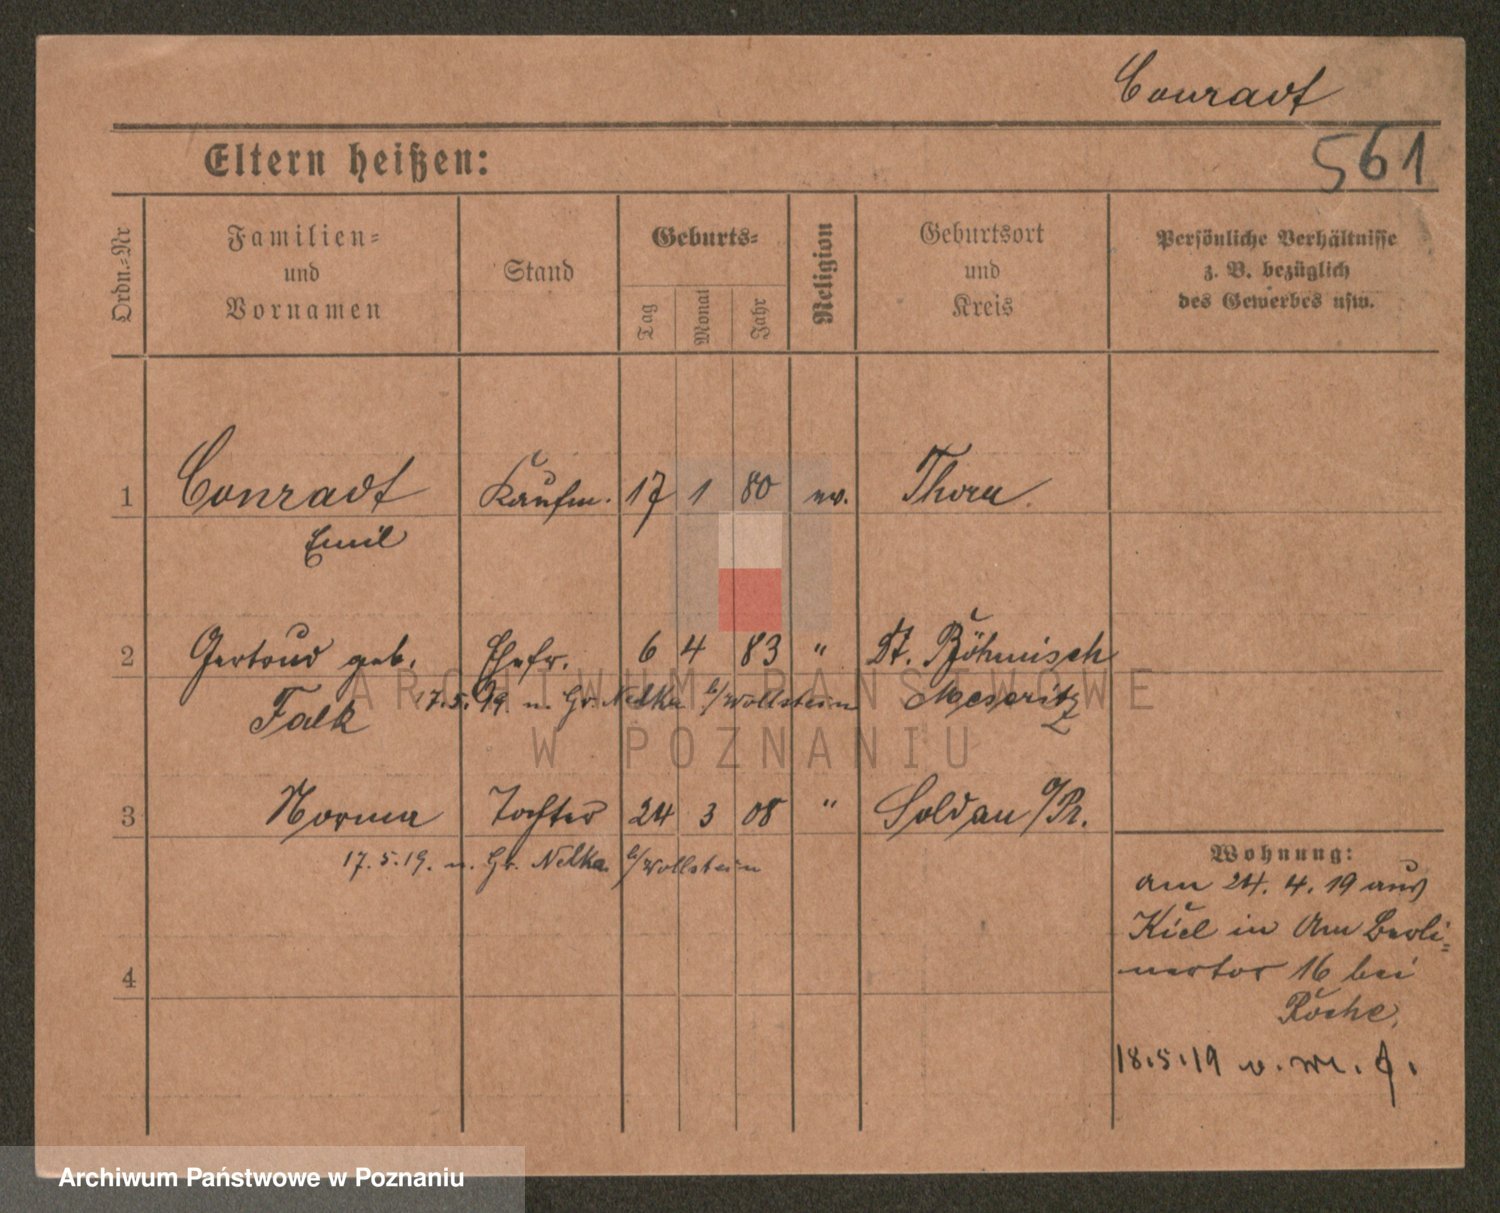 Conradt
Eltern heißen:
561
Ordn.-Nr
Familien-
und
Vornamen
Stand
Geburts-
Tag
Monat
Jahr
Religion
Geburtsort
und
Kreis
Persönliche Verhältnisse
z. B. bezüglich
des Gewerbes usw.
1 Conradt Kaufm. 17 1 80 ev. Thorn
Emil
2 Gertrud geb. Ehefr. 6 4 83 " Dt. Böhmisch
Falk 17.5.19. n. Gr. Nelka b/Wollstein Meseritz
3 Norma Tochter 24 3 08 " Soldau O/Pr.
17.5.19. n. Gr. Nelka b/Wollstein
Wohnung:
am 24. 4. 19 aus
Kiel in Am Berli=
nertor 16 bei
4
18.5.19
ARCHIWUM PAŃSTWOWE
W POZNANIU
Archiwum Państwowe w Poznaniu